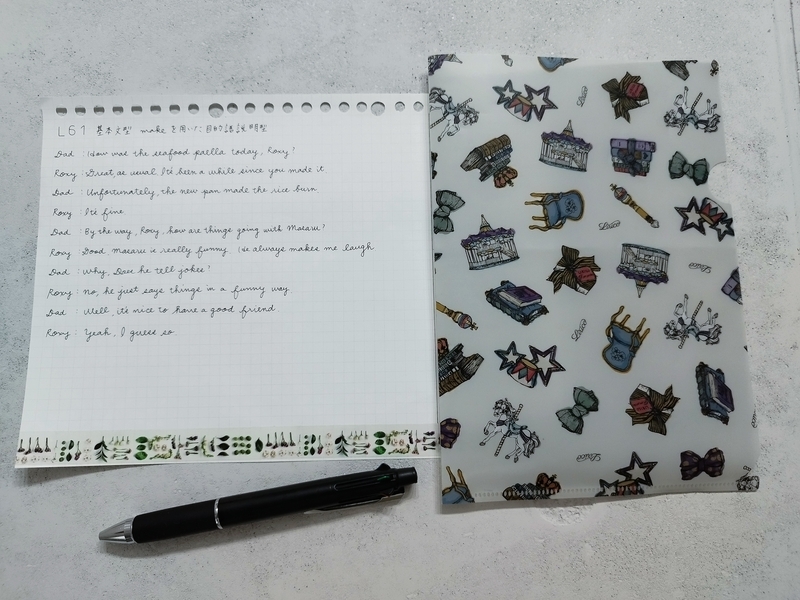 L61 基本文型 make を用いた目的語説明型
Dad : How was the seafood paella today, Roxy?
Roxy : Great as usual. It's been a while since you made it.
Dad : Unfortunately, the new pan made the rice burn.
Roxy : It's fine.
Dad : By the way, Roxy, how are things going with Masaru?
Roxy : Good, Masaru is really funny. He always makes me laugh.
Dad : Why, Does he tell jokes?
Roxy : No, he just says things in a funny way.
Dad : Well, it's nice to have a good friend.
Roxy : Yeah, I guess so.